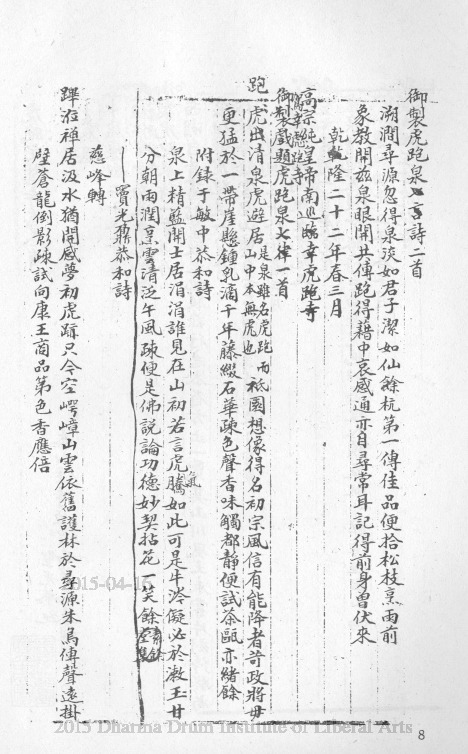 御製虎跑泉七言詩二首
溯澗尋源忽得泉淡如君子潔如仙餘杭第一傳佳品便拾松枝烹雨前
象教開茲泉眼開共傳跑得藉中哀感通亦自尋常耳記得前身曾伏來
乾隆二十二年春三月
高宗純皇帝南巡臨幸虎跑寺
御製戲題虎跑泉七律一首
跑虎出清泉虎避居是泉雖名虎跑而山中本無虎也祇園想像得名初宗風信有能降者苛政將毋
更猛於一帶崖懸鍾乳滴千年藤綴石華疎色聲香味觸都靜便試茶甌亦緒餘
附錄于敏中恭和詩
泉上精藍開士居涓涓誰見在山初若言虎騰氣如此可是牛涔儗必於漱玉甘
分朝雨潤烹雲清泛午風疎便是佛說論功德妙契拈花一笑餘
竇光鼐恭和詩
慈峰轉
蹕泊禪居汲水猶聞感夢初虎蹟只今空崿嶂山雲依舊護林於尋源朱鳥傳聲遠掛
壁蒼龍倒影疎試向康王商品第色香應倍
2015-04-16
2015 Dharma Drum Institute of Liberal Arts
8